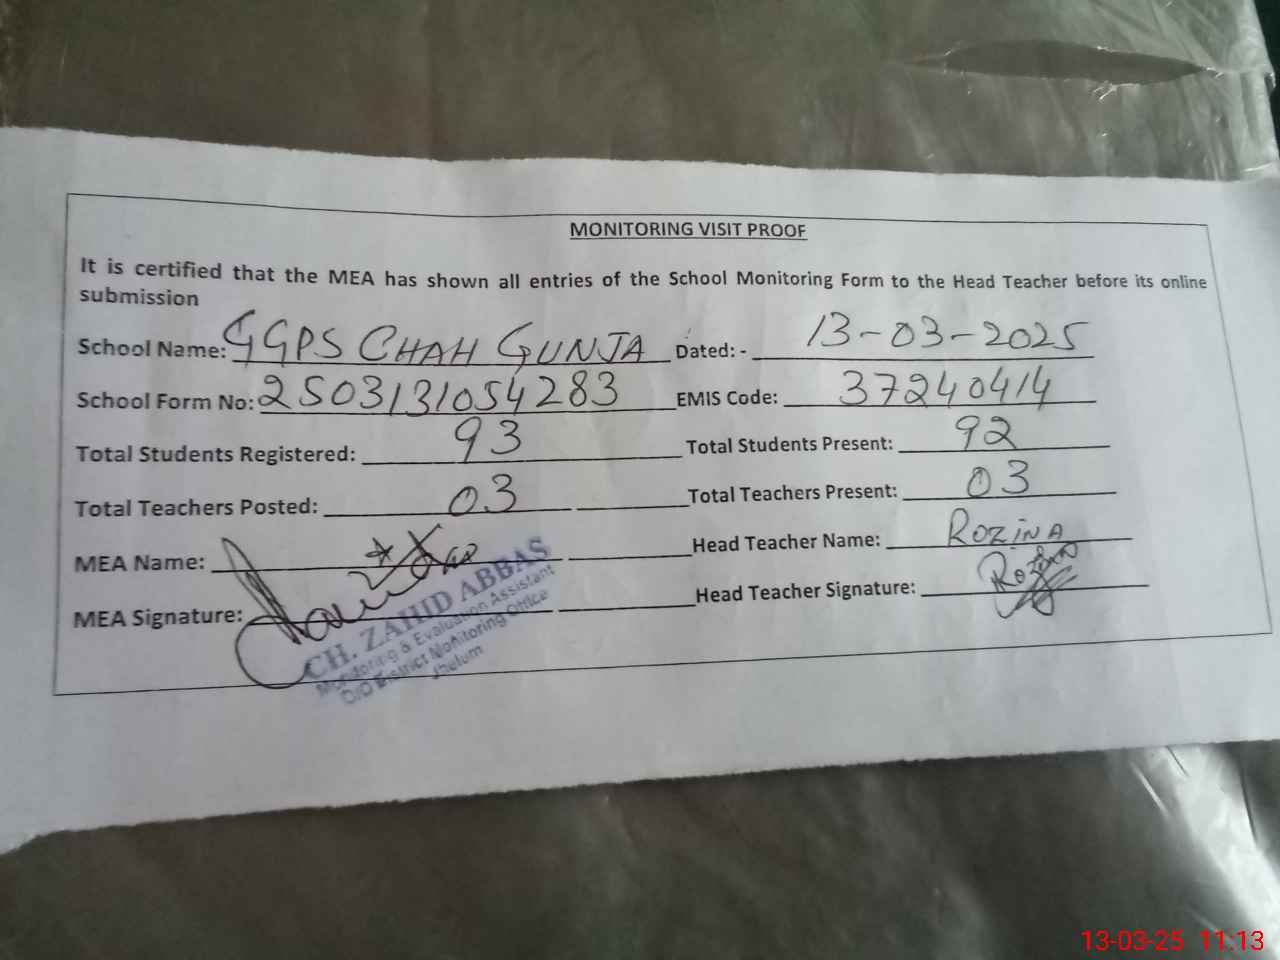 MONITORING VISIT PROOF
It is certified that the MEA has shown all entries of the School Monitoring Form to the Head Teacher before its online
submission
School Name: GGPS CHAH GUNJA Dated: - 13-03-2025
School Form No: 2503131054283 EMIS Code: 37240414
Total Students Registered: 93 Total Students Present: 92
Total Teachers Posted: 03 Total Teachers Present: 03
MEA Name: Head Teacher Name: ROZINA
MEA Signature: Head Teacher Signature: Rozina
CH. ZAHID ABBAS
Monitoring & Evaluation Assistant
O/O District Monitoring Office
Jhelum
13-03-25 11:13